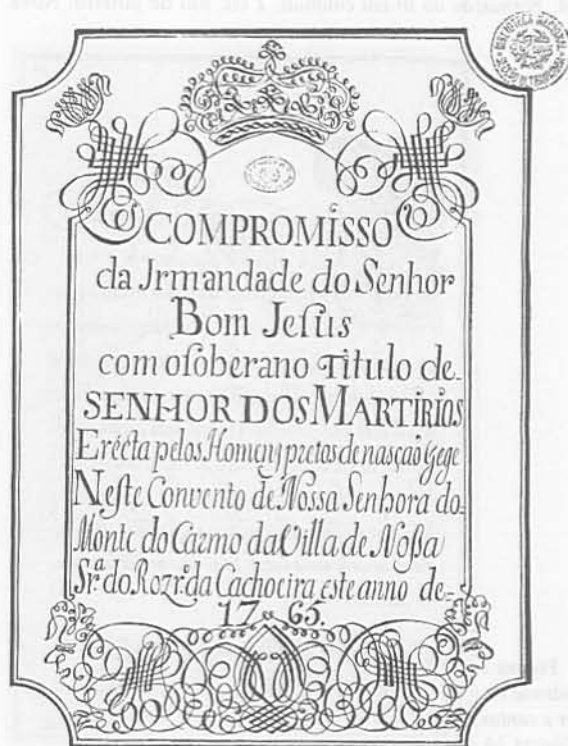 COMPROMISSO
da Jrmandade do Senhor
Bom Jeſus
com oſoberano Titulo de
SENHOR DOS MARTIRIOS
Erécta pelos Homens pretos de nasção Gege
Neſte Convento de Noſsa Senhora do
Monte do Carmo da Villa de Noſsa
Srª. do Rozrº. da Cachoeira este anno de
1765.